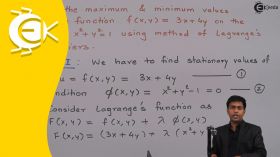 the maximum & minimum values
function f(x,y) = 3x+4y on the
x²+y²=1 using method of Lagrange's
iers.
I : We have to find stationary values of
u = f(x,y) = 3x+4y — ①
ndition φ(x,y) = x²+y²-1 = 0 — ②
onsider Lagrange's function as
F(x,y) = f(x,y) + λ φ(x,y)
F(x,y) = (3x+4y) + λ (x²+y²
Ekeeda